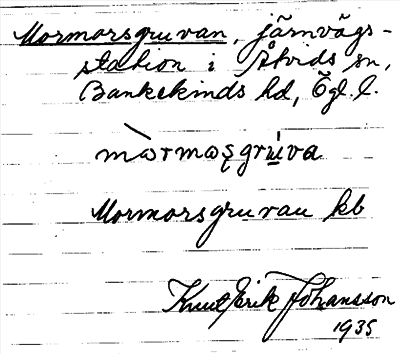 Mormorsgruvan, järnvägs-
station i Åtvids sn,
Bankekinds hd, Ögl. l.
Mormorsgruvan kb
Knut Erik Johansson
1935